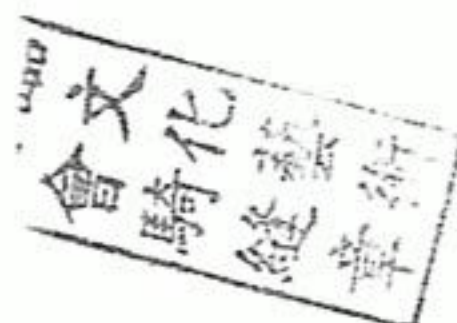 文化藝術
會騎縫章